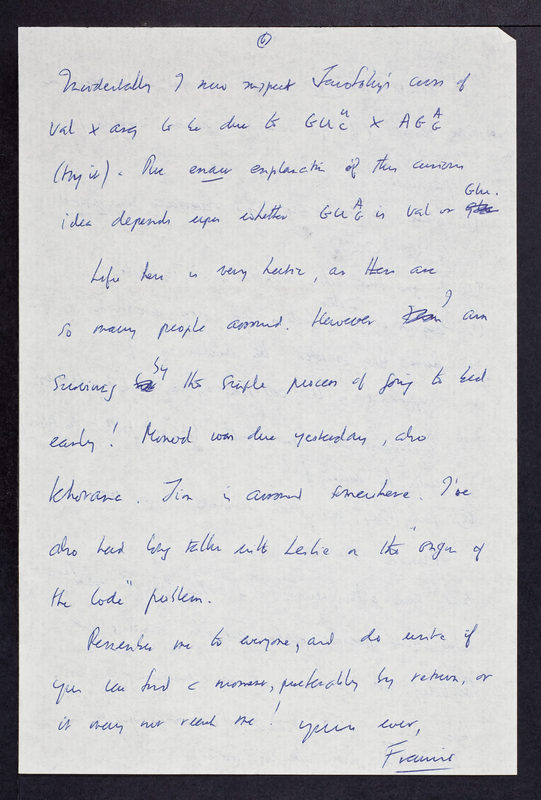 6
Incidentally I now suspect Yanofsky's cross of
Val x arg to be due to GU U C x AG A G
(try it). The exact explanation of this curious
idea depends upon whether GU A G is val or Glu.
Life here is very hectic, as there are
so many people around. However I am
surviving by the simple process of going to bed
early! Monod was due yesterday, also
Khorana. Jim is around somewhere. I've
also had long talks with Leslie on the "origin of
the Code" problem.
Remember me to everyone, and do write if
you can find a moment, preferably by return, or
it may not reach me! yours ever,
Francis